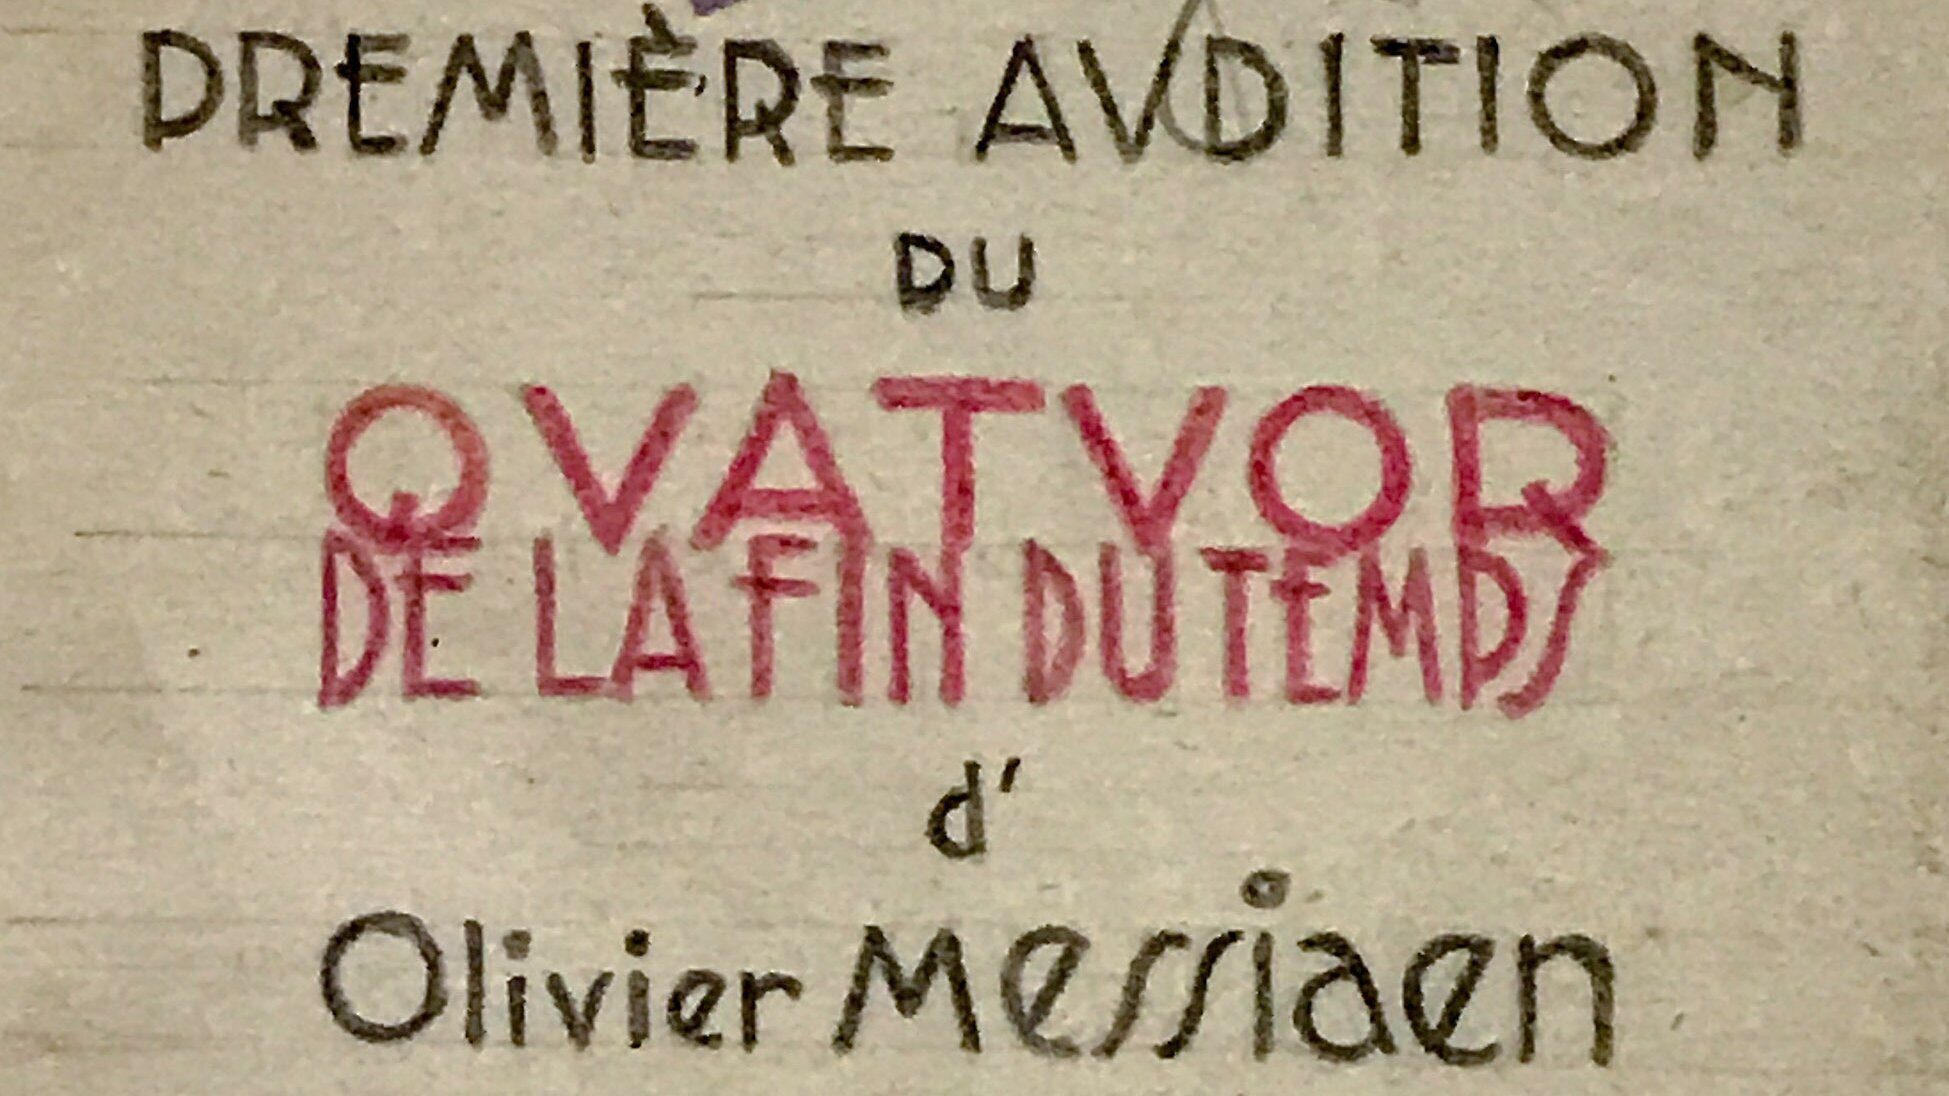 PREMIÈRE AVDITION
DU
QVATVOR
DE LA FIN DU TEMPS
d'
Olivier Messiaen